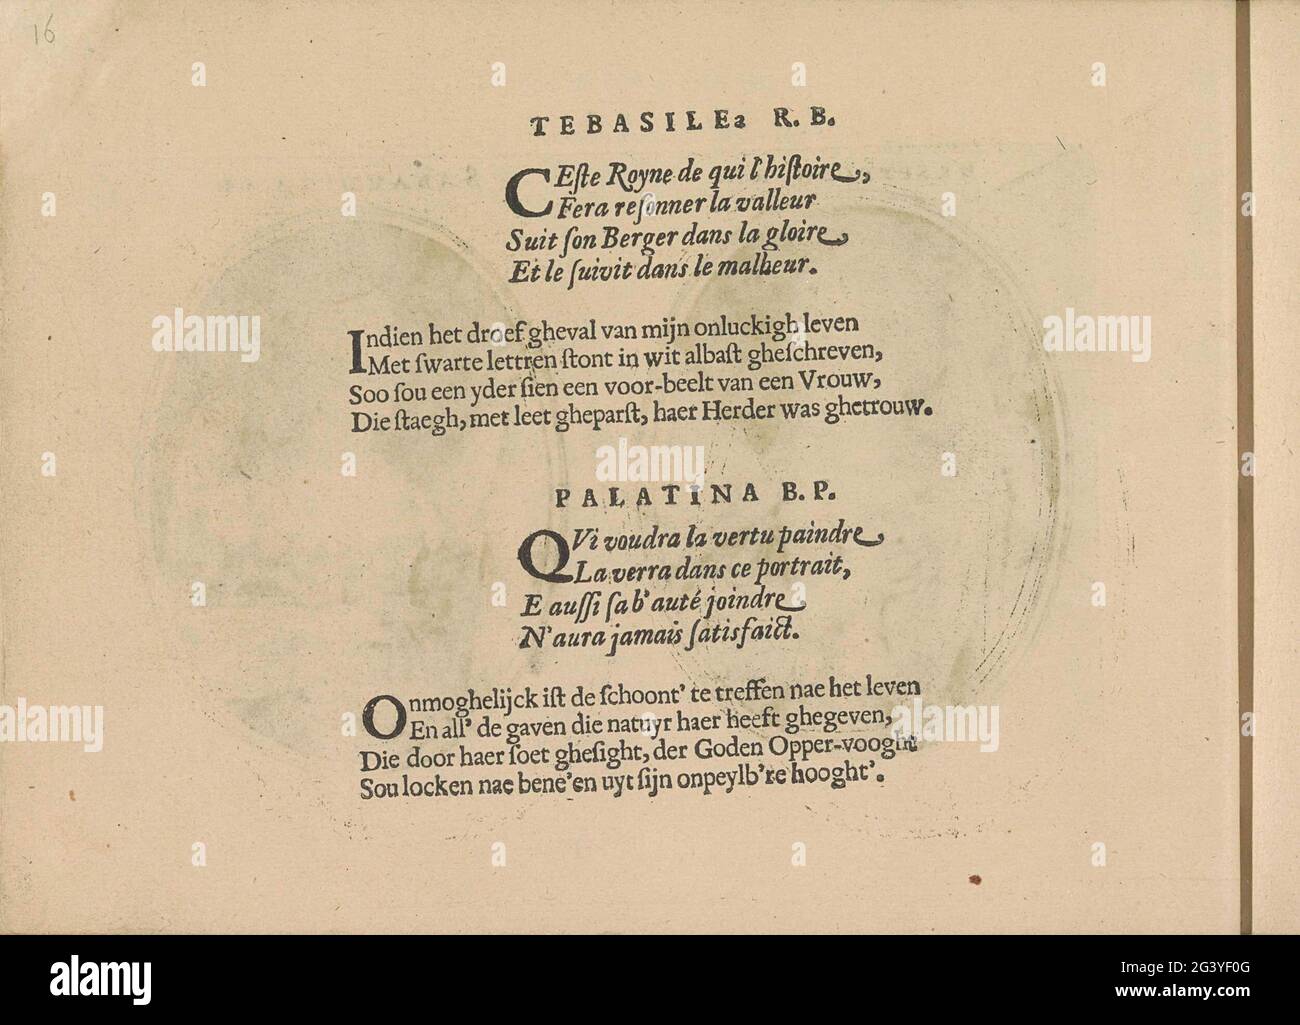 16
TEBASILEa R. B.
CEſte Royne de qui l'hiſtoire,
Fera reſonner la valleur
Suit ſon Berger dans la gloire,
Et le ſuivit dans le malheur.
Indien het droef gheval van mijn onluckigh leven
Met ſwarte lettren ſtont in wit albaſt gheſchreven,
Soo ſou een yder ſien een voor-beelt van een Vrouw,
Die ſtaegh, met leet gheparſt, haer Herder was ghetrouw.
PALATINA B. P.
QVi voudra la vertu paindre
La verra dans ce portrait,
E auſſi ſa b'auté joindre
N'aura jamais ſatisfaict.
Onmoghelijck iſt de ſchoont' te treffen nae het leven
En all' de gaven die natuyr haer heeft ghegeven,
Die door haer ſoet gheſight, der Goden Opper-vooght
Sou locken nae bene'en uyt ſijn onpeylb're hooght'.
a alamy
alamy
Image ID: 2G3YF0G
www.alamy.com